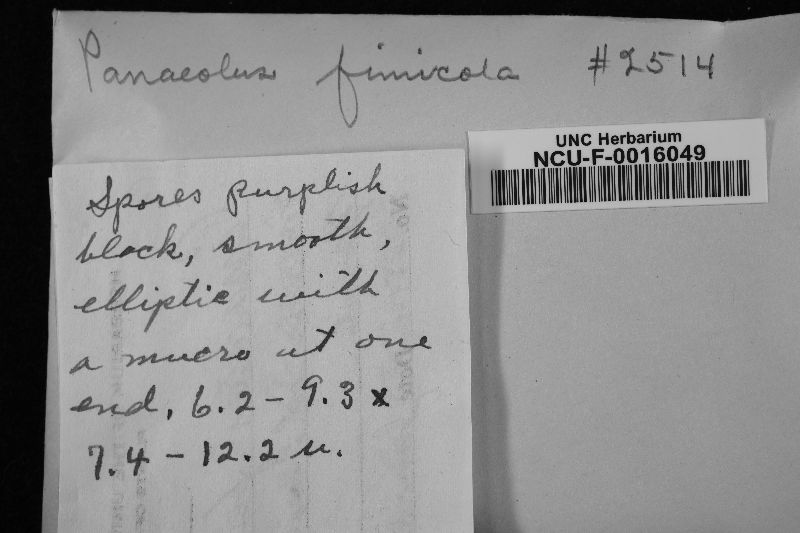 Panaeolus fimicola #2514
UNC Herbarium
NCU-F-0016049
Spores purplish
black, smooth,
elliptic with
a mucro at one
end, 6.2 - 9.3 x
7.4 - 12.2 u.